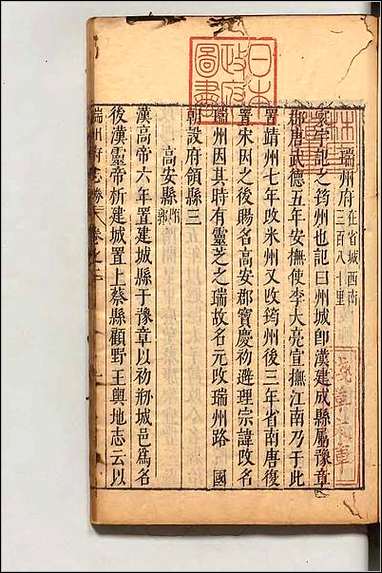 瑞州府 在省城西南三百八十里
寰宇記之筠州也記曰州城卽漢建成縣屬豫章
郡唐武德五年安撫使李大亮宣撫江南乃于此
置靖州七年改米州又改筠州後三年省南唐復
置宋因之後賜名高安郡寶慶初避理宗諱改名
瑞州因其時有靈芝之瑞故名元改瑞州路 國
朝設府領縣三
高安縣 附郭
漢高帝六年置建城縣于豫章以初剏城邑爲名
後漢靈帝析建城置上蔡縣顧野王輿地志云以
瑞州府志勝 卷之二
日本政府圖書